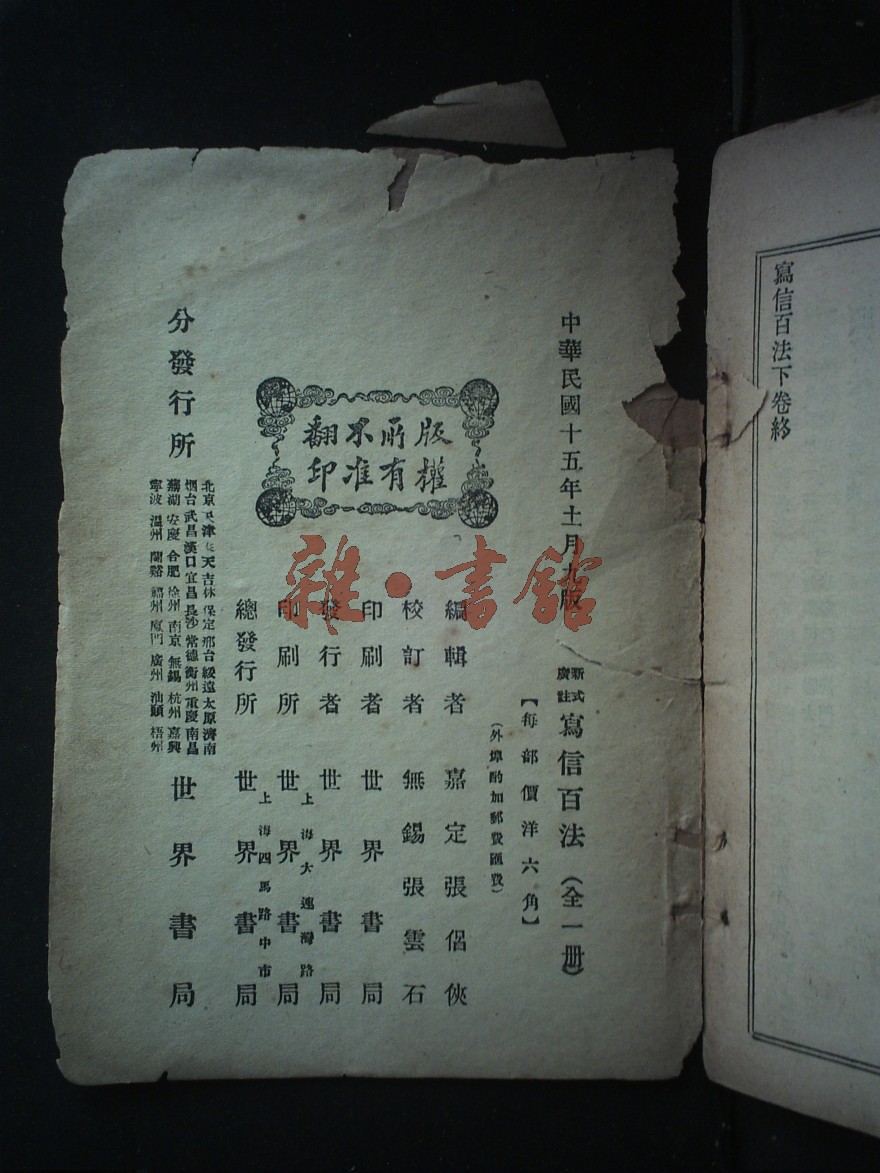 寫信百法下卷終
中華民國十五年十一月 版
新式
廣註
寫信百法(全一册)
【每部價洋六角】
(外埠酌加郵費匯費)
編輯者 嘉定張侶俠
校訂者 無錫張雲石
印刷者 世界書局
發行者 世界書局
上海大連灣路
印刷所 世界書局
上海四馬路中市
總發行所 世界書局
版權
所有
不准
翻印
分發行所
北京 津 天吉林保定邢台綏遠太原濟南
烟台武昌漢口宜昌長沙常德衡州重慶南昌
蕪湖安慶合肥徐州南京無錫杭州嘉興
寧波溫州蘭谿福州廈門廣州汕頭梧州
世界書局
雜·書館